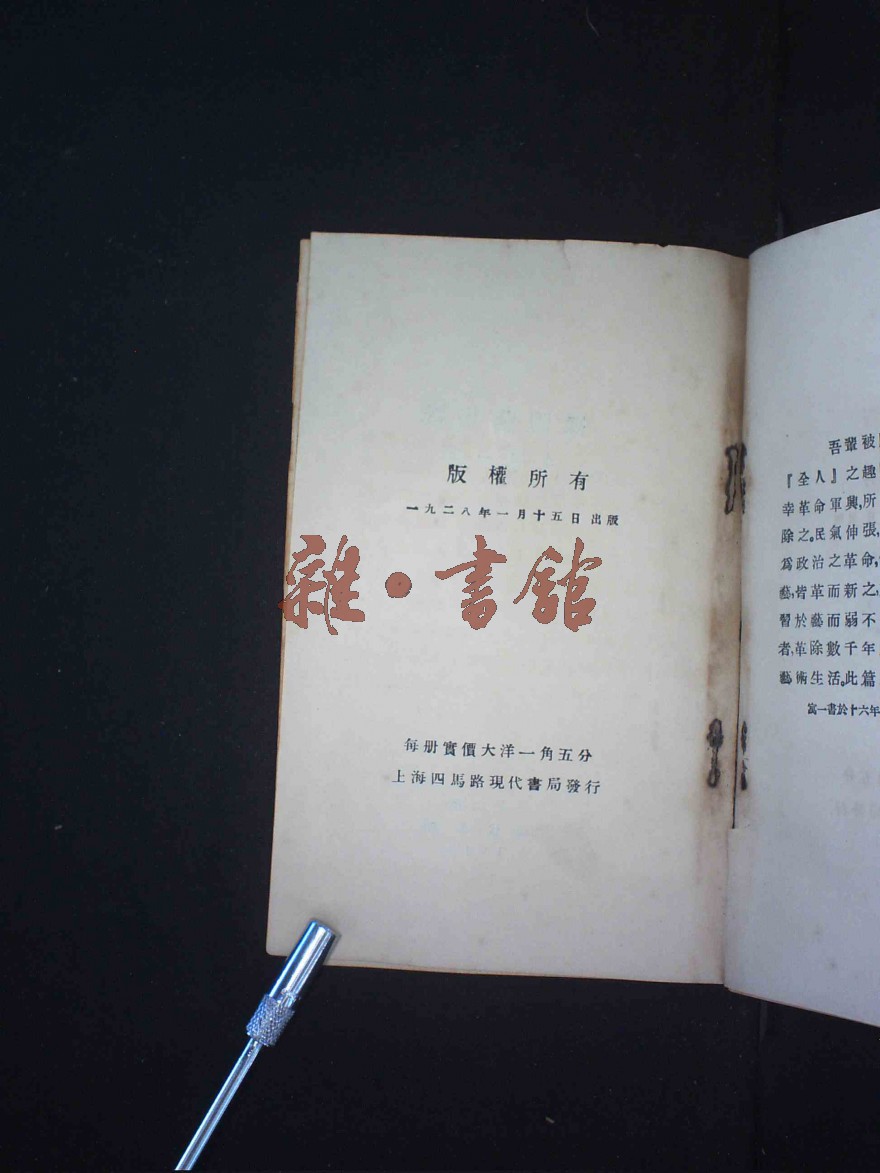 版權所有
一九二八年一月十五日出版
雜·書館
每册實價大洋一角五分
上海四馬路現代書局發行
吾輩被
『全人』之趣
幸革命軍興,所
除之。民氣伸張,
爲政治之革命,
藝,皆革而新之,
習於藝而弱不
者,革除數千年
藝術生活。此篇
寓一書於十六年